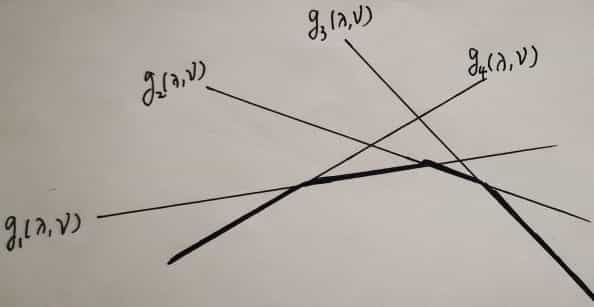 g₃(λ,ν)
g₄(λ,ν)
g₂(λ,ν)
g₁(λ,ν)